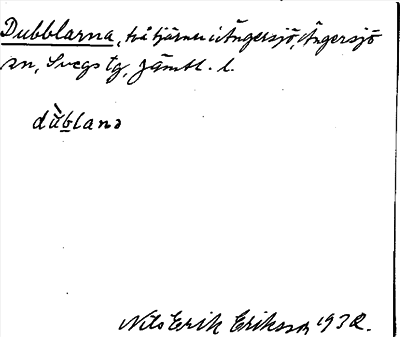 Dubblarna, två tjärnar i Ängersjö, Ängersjö
sn, Svegs tg, Jämtl. l.
dùblanə
Nils Erik Eriksson 1932.